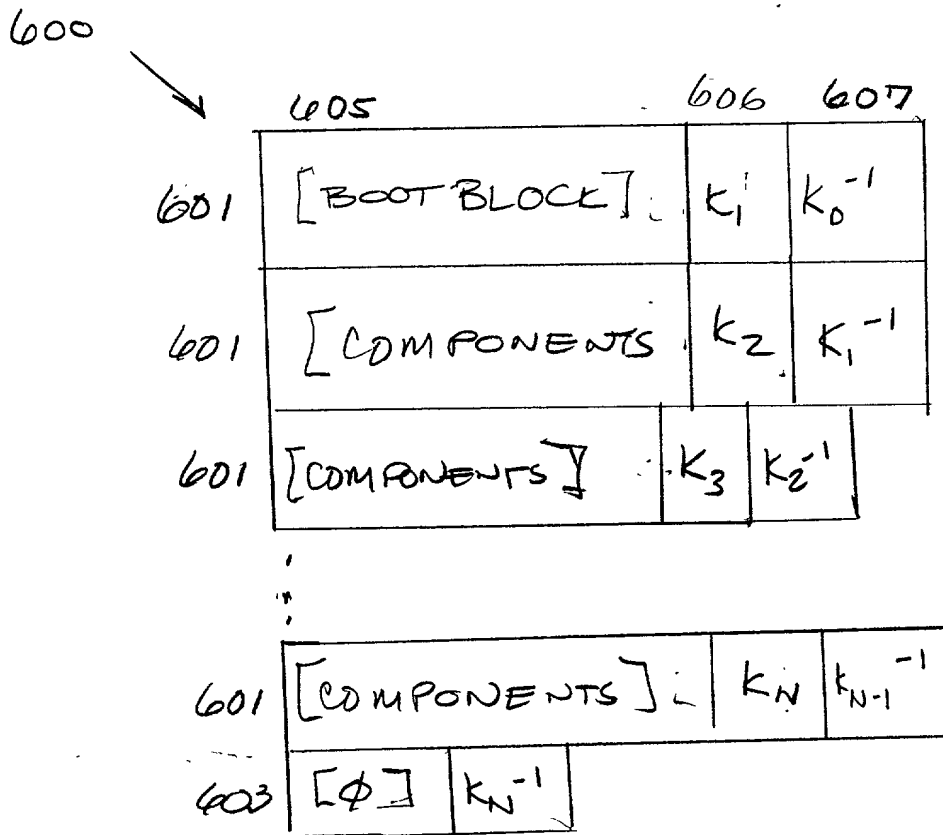 600
605 606 607
601 [BOOT BLOCK] K₁ K₀⁻¹
601 [COMPONENTS K₂ K₁⁻¹
601 [COMPONENTS] K₃ K₂⁻¹
601 [COMPONENTS] K_N K_N-1⁻¹
603 [φ] K_N⁻¹